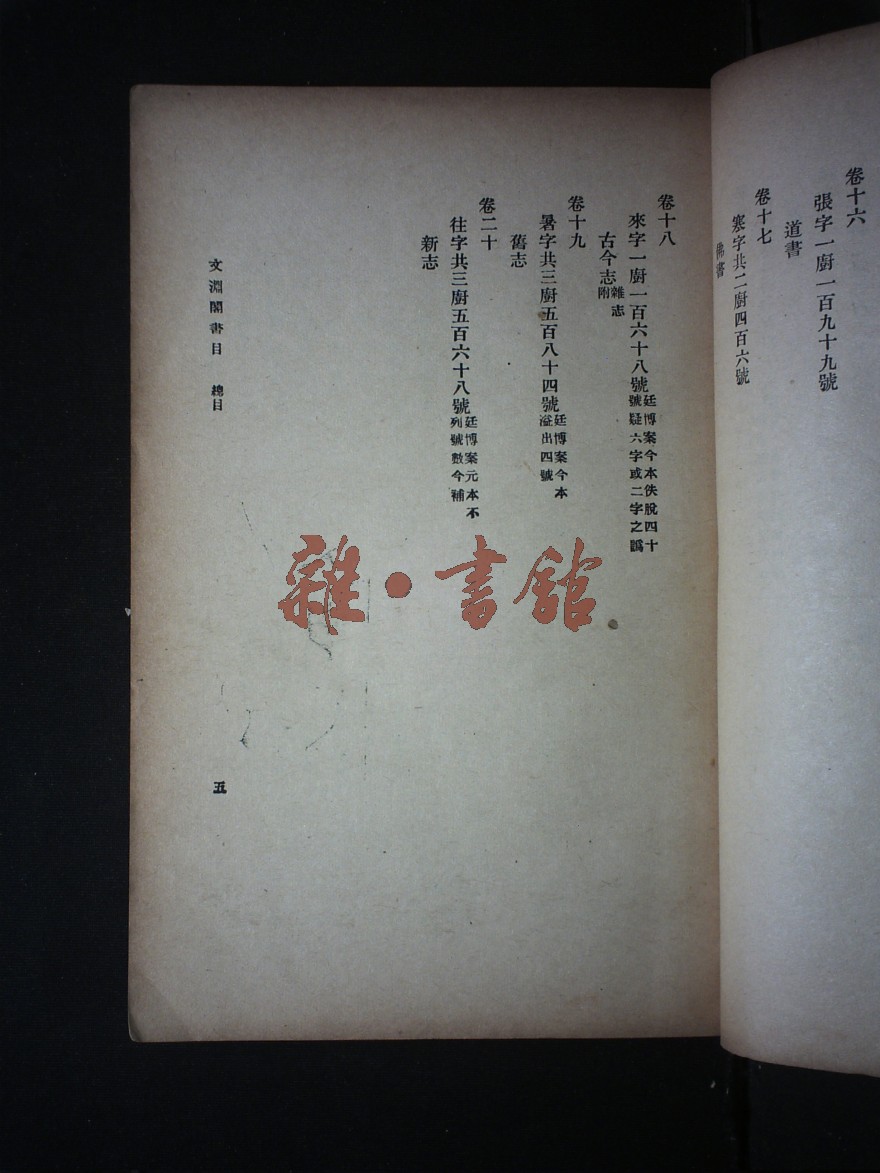 卷十六
張字一廚一百九十九號
道書
卷十七
寒字共二廚四百六號
佛書
卷十八
來字一廚一百六十八號廷博案今本佚脫四十
號疑六字或二字之譌
古今志雜志
附
卷十九
暑字共三廚五百八十四號廷博案今本
溢出四號
舊志
卷二十
往字共三廚五百六十八號廷博案元本不
列號數今補
新志
文淵閣書目 總目
五
雜·書館